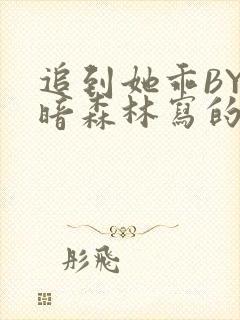 追到她乖BY
暗森林寫的
彤飛